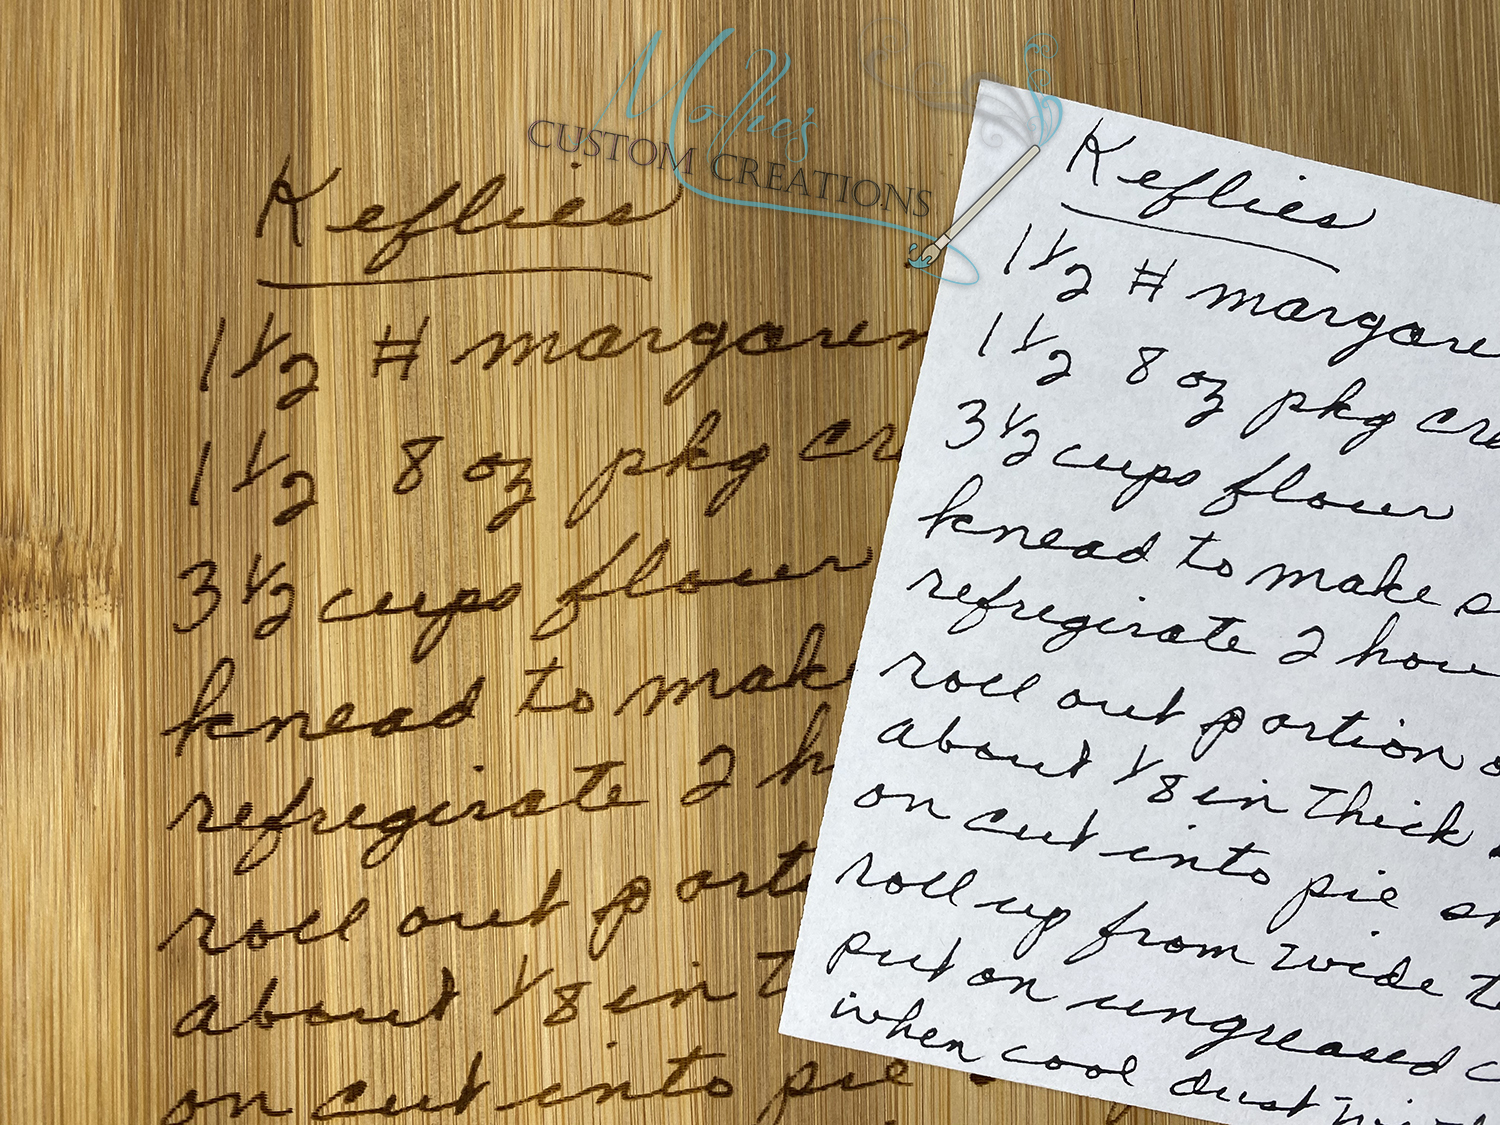 Mollie's
CUSTOM CREATIONS
Keflies
1 1/2 # margaren
1 1/2 8 oz pkg cr
3 1/2 cups flour
knead to make
refregirate 2 h
roll out porti
about 1/8 in t
on cut into pie
Keflies
1 1/2 # margare
1 1/2 8 oz pkg cre
3 1/2 cups flour
knead to make s
refregirate 2 hou
roll out portion o
about 1/8 in thick
on cut into pie sh
roll up from wide t
put on ungreased c
when cool dust with